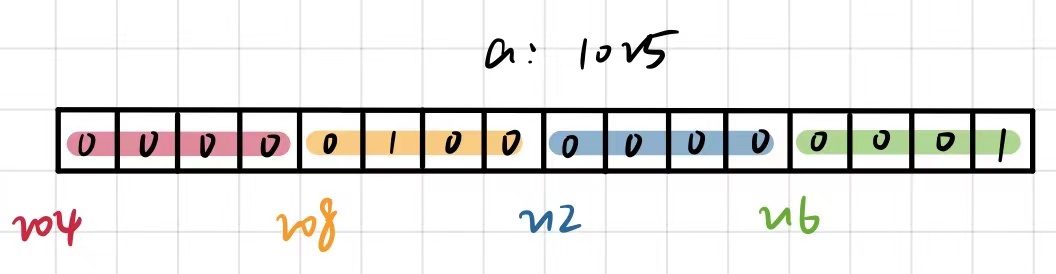 a: 1025
0 0 0 0 0 1 0 0 0 0 0 0 0 0 0 1
204 208 212 216